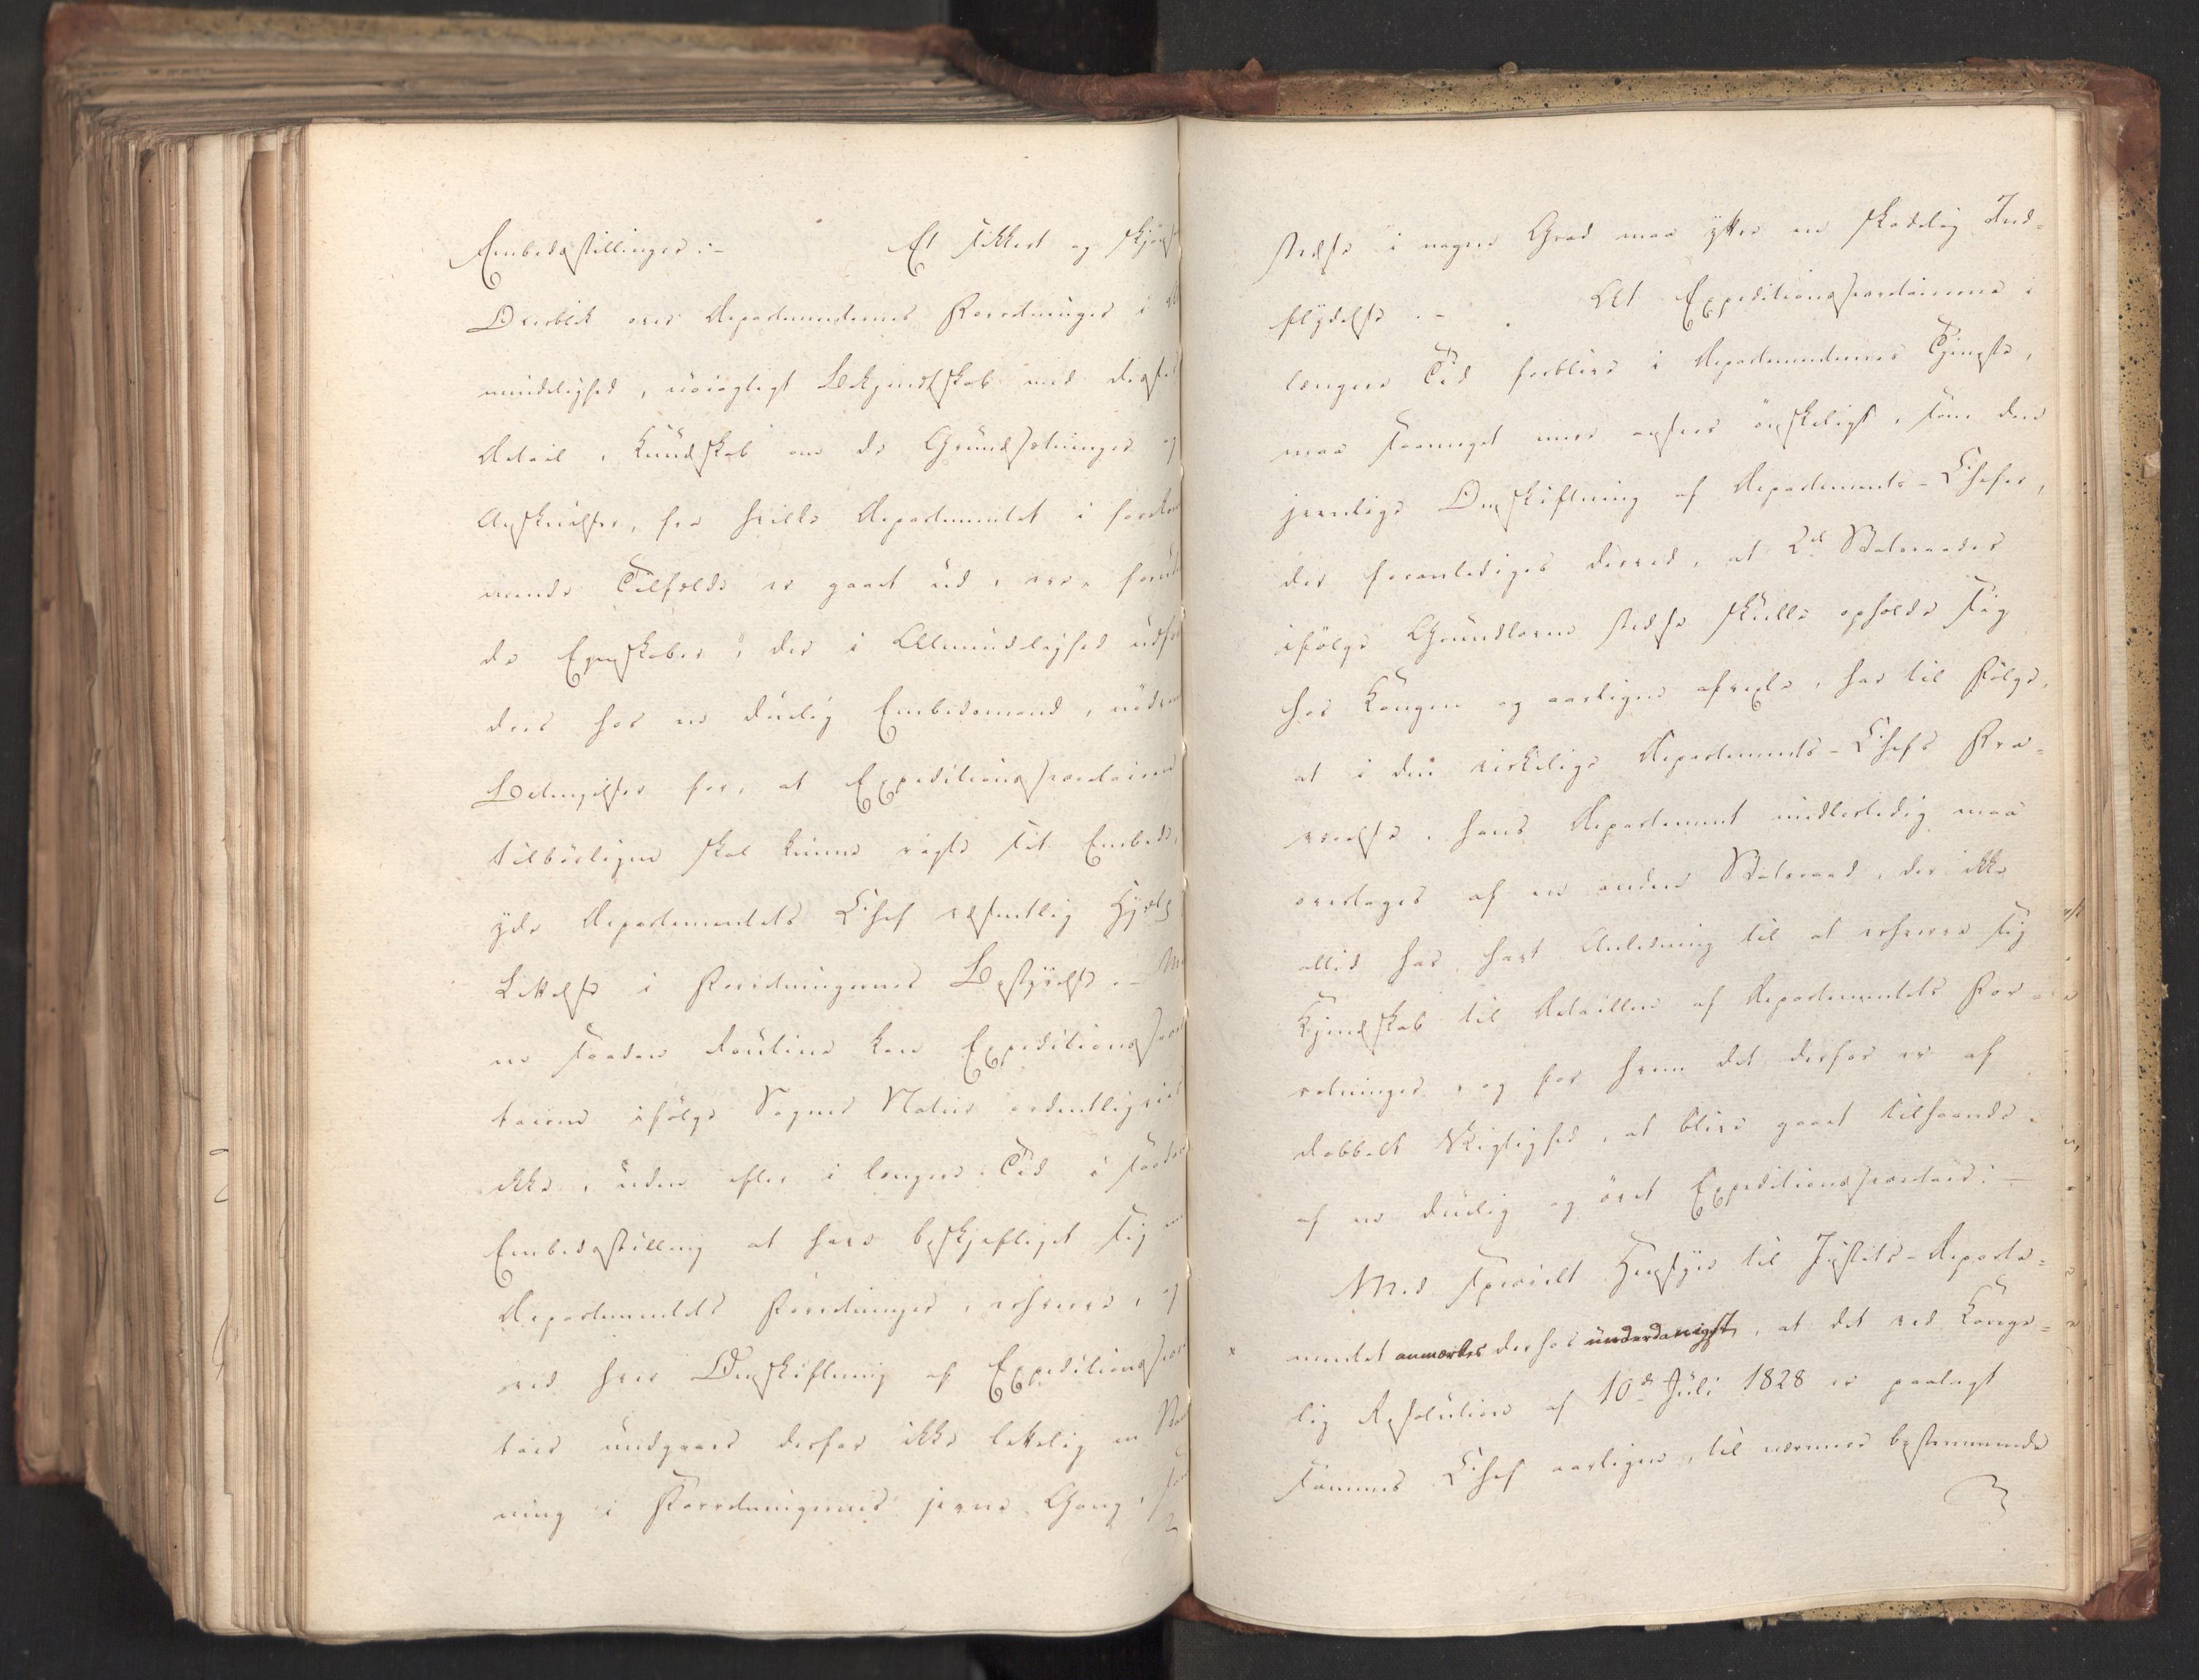 Embedsstillinger.- Et sikkert og skjøns
Overblik over Departementernes Forretninger i Al
mindelighed, nöiagtigt Bekjendtskab med disses
Detail, Kundskab om de Grundsætninger og
Anskuelser, fra hvilke Departementet i forekom
mende Tilfælde er gaaet ud, ere, foruden
de Egenskaber, der i Almindelighed udfor
dres hos en duelig Embedsmand, nödven
Betingelser for, at Expeditionssecretairen
tilbörligen skal kunne røgte sit Embede,
yde Departementets Chef væsentlig Hjelp
Lettelse i Forretningernes Bestyrelse.- Me
en saadan Routine kan Expeditionssecre
tairen ifölge Sagens Natur ordentligviis
ikke, uden efter i længere Tid i saadan
Embedsstilling at have beskjæftiget sig med
Departementets Forretninger, erhverve, og
ved hver Omskiftning af Expeditionssecre
tair undgaaes derfor ikke lettelig en Stand
ning i Forretningernes jevne Gang, som
stedse i nogen Grad maa yttre en skadelig Ind-
flydelse.- At Expeditionssecretairerne i
længere Tid forblive i Departementernes Tjeneste,
maa saameget mere ansees önskeligt, som den
jevnlige Omskiftning af Departements-Chefer,
der foranlediges derved, at 2de Statsraader
ifölge Grundloven stedse skulle opholde sig
hos Kongen og aarligen afvexle, har til Fölge,
at i den virkelige Departements-Chefs Fra-
værelse, hans Departement midlertidig maa
overtages af en anden Statsraad, der ikke
altid har havt Anledning til at erhverve sig
Kjendskab til Detaillen af Departementets For-
retninger, og for hvem det derfor er af
dobbelt Vigtighed, at blive gaaet tilhaande
af en duelig og övet Expeditionssecretair.-
Med specielt Hensyn til Justits-Departe-
mentet anmærkes derhos underdanigst, at det ved Konge-
lig Resolution af 10de Juli 1828 er paalagt
sammes Chef aarligen, til nærmere bestemmende